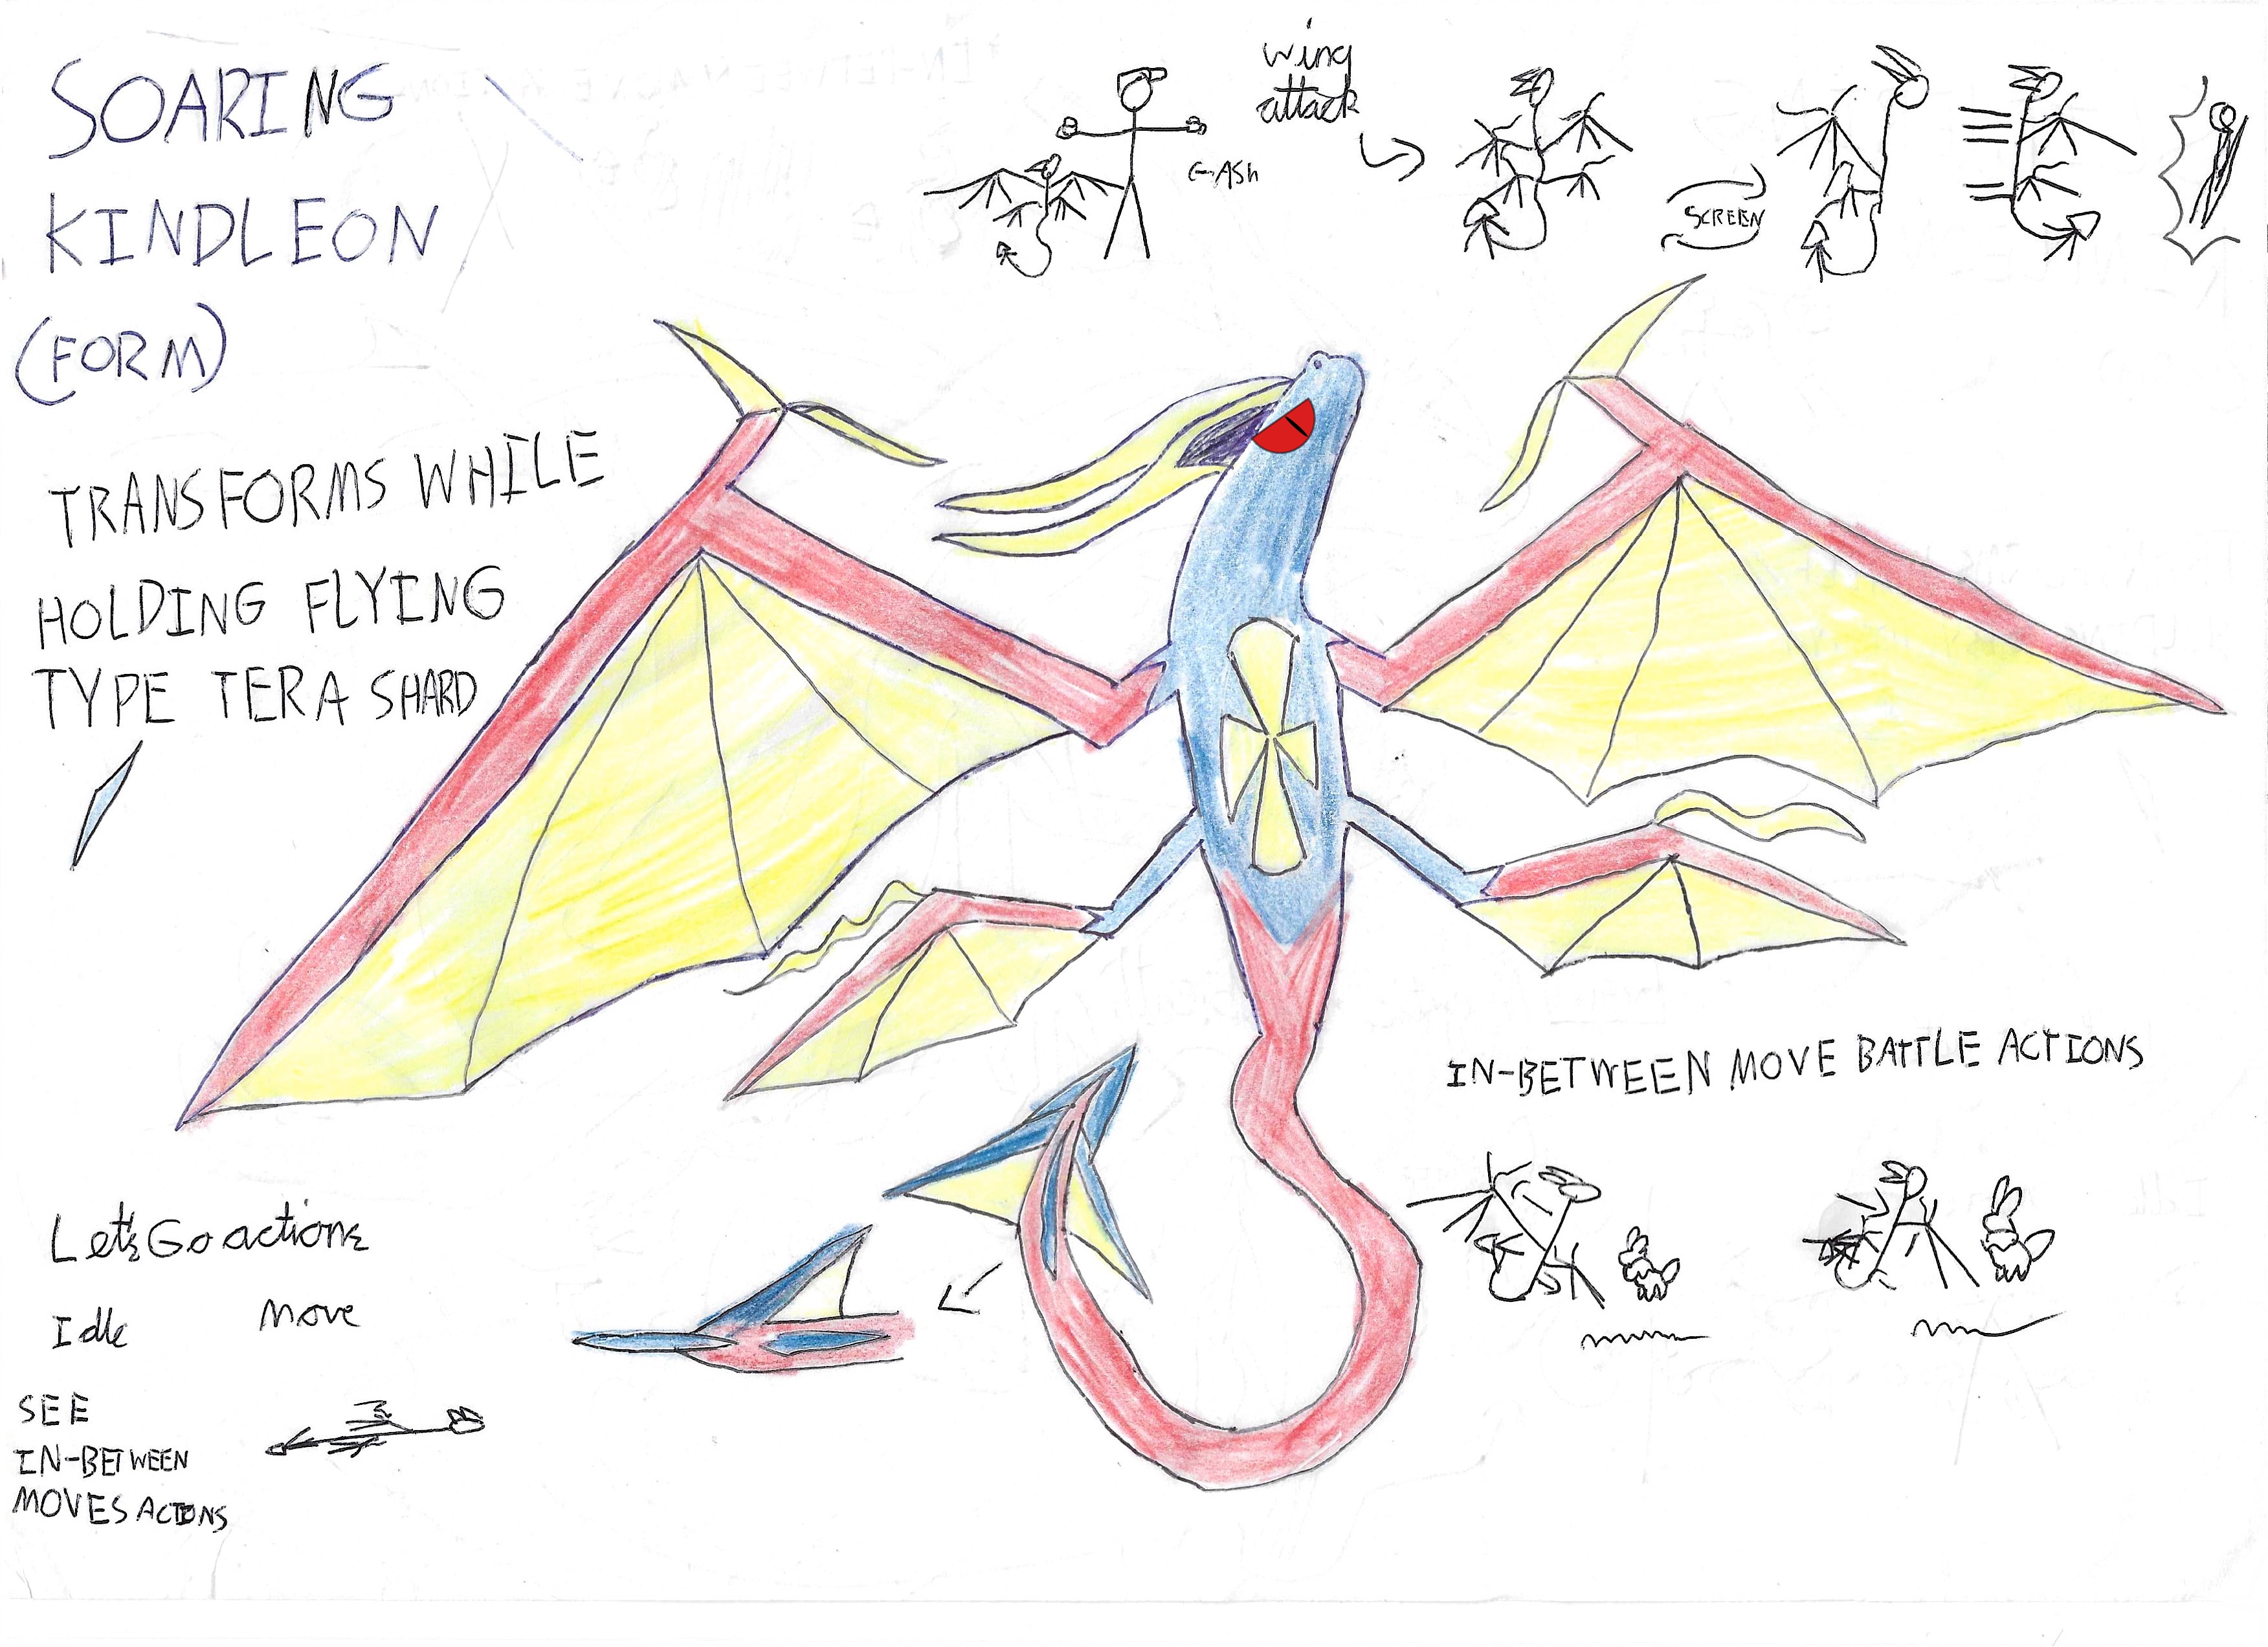 SOARING
KINDLEON
(FORM)
TRANSFORMS WHILE
HOLDING FLYING
TYPE TERA SHARD
wing
attack
ASH
SCREEN
IN-BETWEEN MOVE BATTLE ACTIONS
Let's Go actions
Idle
Move
SEE
IN-BETWEEN
MOVES ACTIONS